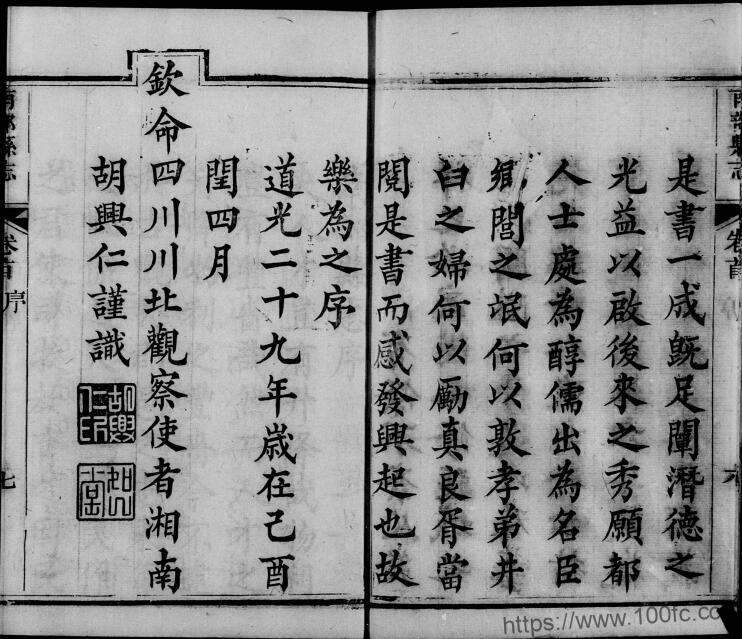 南部縣志
卷首
是書一成旣足闡潛德之
光益以啟後來之秀願都
人士處為醇儒出為名臣
鄉閭之氓何以敦孝弟井
臼之婦何以勵真良胥當
閱是書而感發興起也故
樂為之序
道光二十九年歲在己酉
閏四月
欽命四川川北觀察使者湘南
胡興仁謹識
胡興仁印
南部縣志
卷首
序
七
https://www.100fc.co